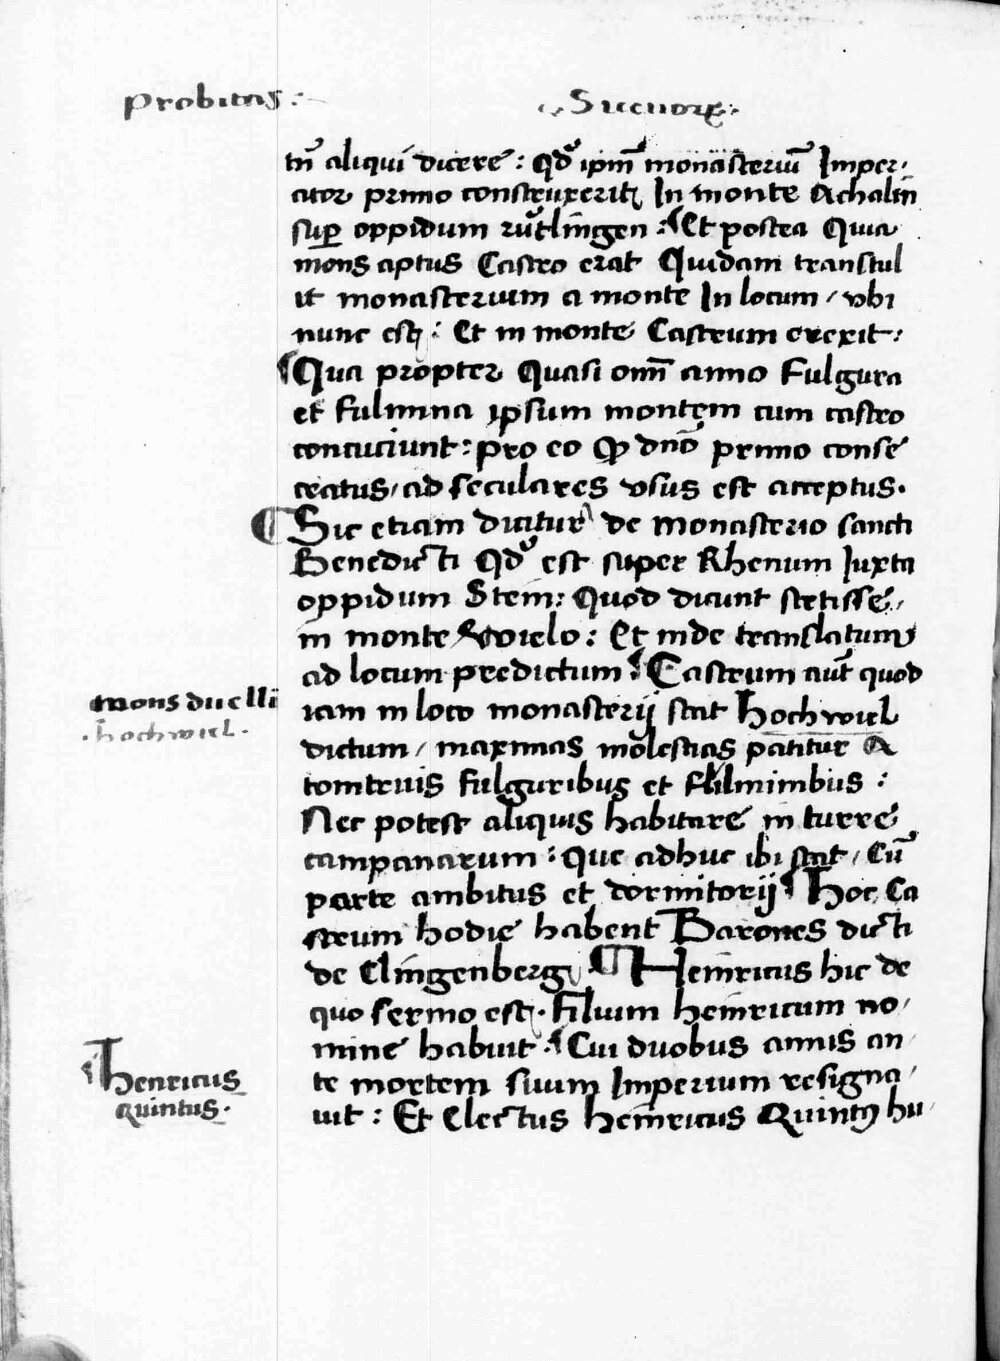 Probitas :
Sueuorꝝ :
tn̄ aliqui dicere : Qđ ipm̄ monasteriū Imper,
ator primo construxerit In monte Achalm
suꝑ oppidum rütlingen : Et postea Quia
mons aptus Castro erat Quidam transtul
it monasterium a monte In locum / vbi
nunc est : Et in monte Castrum erexit :
Qua propter Quasi omī anno Fulgura
et Fulmina ipsum montem cum castro
concuciunt : pro eo ꝙ dn̄o primo conse
cratus / ad seculares vsus est acceptus .
Sic etiam dicitur de monasterio sancti
Benedicti Qđ est super Rhenum Iuxta
oppidum Stein : Quod dicunt stetisse /
in monte wielo : Et inde translatum
ad locum predictum Castrum aut̄ quod
mons duelli
iam in loco monasterij stat Hochwiel
. hochwiel .
dictum / maximas molestias patitur a
tomtruis fulguribus et fulminibus :
Nec potest aliquis habitare in turre
campanarum : Que adhuc ibi stat / Cū
parte ambitus et dormitorij Hoc Ca
strum hodie habent Barones dicti
de Clingenberg Heinricus hic de
quo sermo est . Filium heinricum no/
mine habuit . Cui duobus annis an/
Henricus
te mortem suum Imperium resigna/
quintus .
uit : Et Electus heinricus Quintꝯ hu/